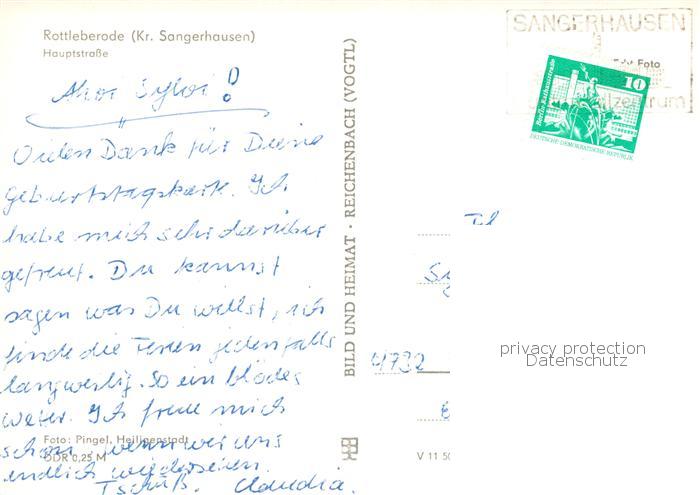 Rottleberode (Kr. Sangerhausen)
Hauptstraße
Ahoi Sylvi!
Vielen Dank für Deine
Geburtstagskarte. Ich
habe mich sehr darüber
gefreut. Du kannst
sagen was Du willst, ich
finde die Ferien jedenfalls
langweilig. So ein blödes
Weter. Ich freue mich
schon, wenn wir uns
endlich wiedersehen.
Tschüß. Claudia.
Foto: Pingel, Heiligenstadt
DDR 0,25 M
BILD UND HEIMAT · REICHENBACH (VOGTL)
V 11 50
SANGERHAUSEN
Foto
zentrum
10
Berlin, Rathausstraße
DEUTSCHE DEMOKRATISCHE REPUBLIK
4732
privacy protection
Datenschutz